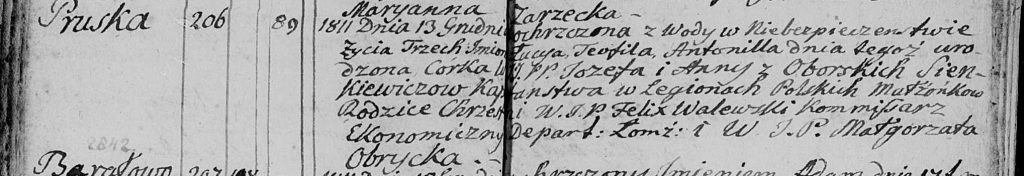 Maryanna Zarzecka -
Pruska 206 89 1811 Dnia 13 Grudnia ochrzczona z Wody w Niebezpieczenstwie
Zycia Trzech Imion Łucya, Teofila, Antonilla dnia tegoż uro-
dzona, Corka W. J. PP. Jozefa i Anny z Oborskich Sien-
kiewiczow Kapitanstwa w Legionach Polskich Małżonkow
Rodzice Chrzestni W. J. P. Felix Walewski Kommissarz
Ekonomiczny Depart: Łomż: i W. J. P. Małgorzata
Obrycka. -
207 ochrzczony Imieniem Adam dnia